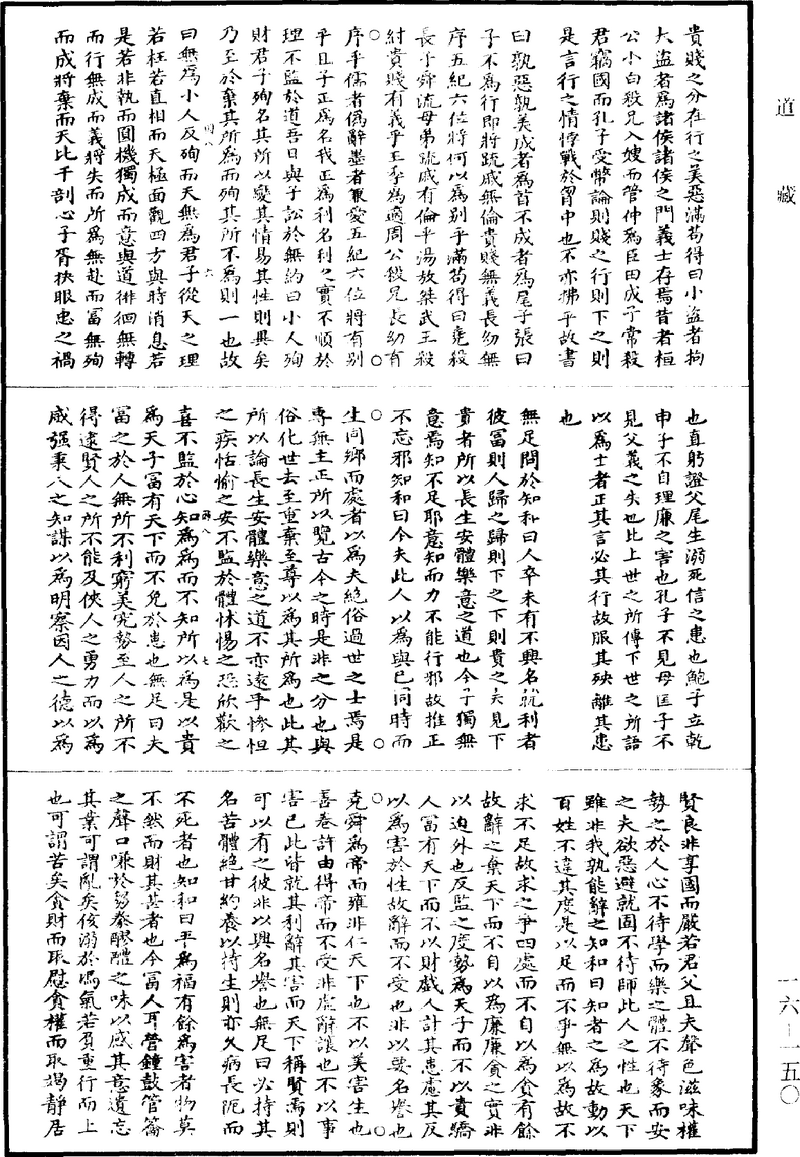 道藏
貴賤之分在行之美惡滿苟得曰小盜者拘
大盜者為諸侯諸侯之門義士存焉昔者桓
公小白殺兄入嫂而管仲為臣田成子常殺
君竊國而孔子受幣論則賤之行則下之則
是言行之情悖戰於胷中也不亦拂乎故書
曰孰惡孰美成者為首不成者為尾子張曰
子不為行即將疏戚無倫貴賤無義長幼無
序五紀六位將何以為別乎滿苟得曰堯殺
長子舜流母弟疏戚有倫乎湯放桀武王殺
紂貴賤有義乎王季為適周公殺兄長幼有
序乎儒者偽辭墨者兼愛五紀六位將有別
乎且子正為名我正為利名利之實不順於
理不監於道吾日與子訟於無約曰小人殉
財君子殉名其所以變其情易其性則異矣
乃至於棄其所為而殉其所不為則一也故
曰無為小人反殉而天無為君子從天之理
若枉若直相而天極面觀四方與時消息若
是若非執而圓機獨成而意與道徘徊無轉
而行無成而義將失而所為無赴而富無殉
而成將棄而天比干剖心子胥抉眼忠之禍
也直躬證父尾生溺死信之患也鮑子立乾
申子不自理廉之害也孔子不見母匡子不
見父義之失也此上世之所傳下世之所語
以為士者正其言必其行故服其殃離其患
也
無足問於知和曰人卒未有不興名就利者
彼富則人歸之歸則下之下則貴之夫見下
貴者所以長生安體樂意之道也今子獨無
意焉知不足耶意知而力不能行邪故推正
不忘邪知和曰今夫此人以為與已同時而
生同鄉而處者以為夫絕俗過世之士焉是
專無主正所以覽古今之時是非之分也與
俗化世去至重棄至尊以為其所為也此其
所以論長生安體樂意之道不亦遠乎慘怛
之疾恬愉之安不監於體怵惕之恐欣歡之
喜不監於心知為為而不知所以為是以貴
為天子富有天下而不免於患也無足曰夫
富之於人無所不利窮美究勢至人之所不
得逮賢人之所不能及俠人之勇力而以為
威強秉人之知謀以為明察因人之德以為
賢良非享國而嚴若君父且夫聲色滋味權
勢之於人心不待學而樂之體不待象而安
之夫欲惡避就固不待師此人之性也天下
雖非我孰能辭之知和曰知者之為故動以
百姓不違其度是以足而不爭無以為故不
求不足故求之爭四處而不自以為貪有餘
故辭之棄天下而不自以為廉廉貪之實非
以迫外也反監之度勢為天子而不以貴驕
人富有天下而不以財戲人計其患慮其反
以為害於性故辭而不受也非以要名譽也
堯舜為帝而雍非仁天下也不以美害生也
善卷許由得帝而不受非虛辭讓也不以事
害已此皆就其利辭其害而天下稱賢焉則
可以有之彼非以興名譽也無足曰必持其
名苦體絕甘約養以持生則亦久病長阨而
不死者也知和曰平為福有餘為害者物莫
不然而財其甚者也今富人耳營鐘鼓管籥
之聲口嗛於芻豢醪醴之味以感其意遺忘
其業可謂亂矣侅溺於馮氣若負重行而上
也可謂苦矣貪財而取慰貪權而取竭靜居
一六—一五〇